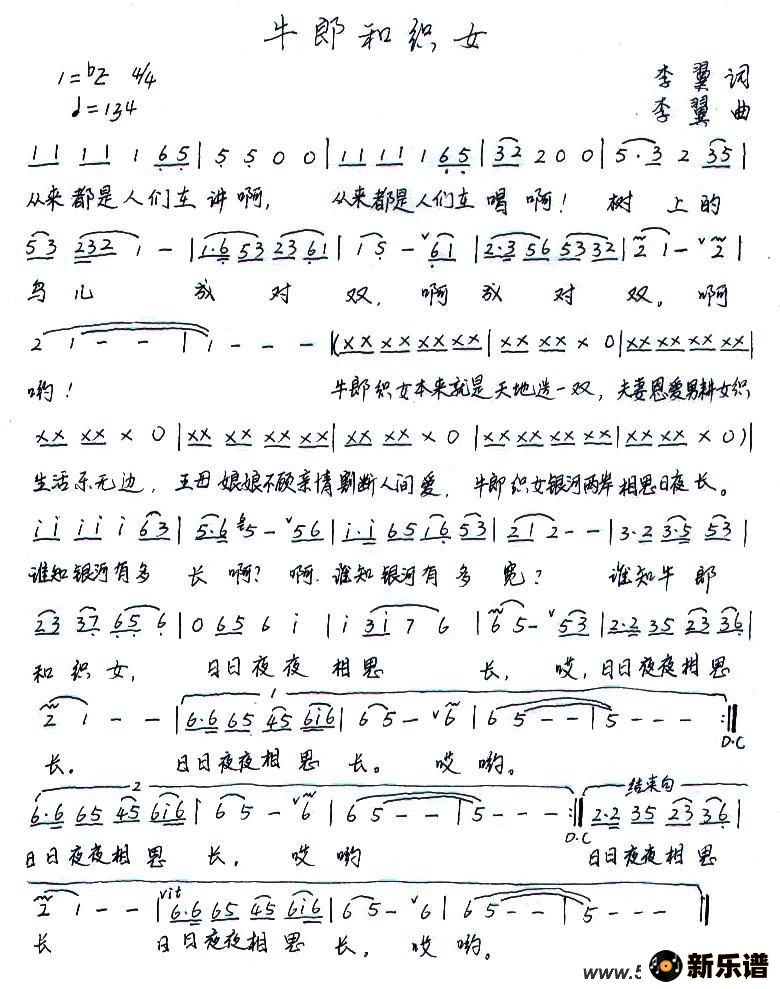 牛郎和织女
1=bE 4/4 李翼词
♩=134 李翼曲
1 1 1 1 1 6 5 | 5 5 0 0 | 1 1 1 1 1 6 5 | 3 2 2 0 0 | 5·3 2 3 5 |
从来都是人们在讲啊, 从来都是人们在唱啊! 树上的
5 3 2 3 2 1 - | 1·6 5 3 2 3 6 1 | 1 5 - ∨6 1 | 2·3 5 6 5 3 3 2 | 2 1 - ∨2 |
鸟儿成对双, 啊成对双。啊
2 1 - - | 1 - - - | (X X X X X X X X | X X X X X 0 | X X X X X X X X |
哟! 牛郎织女本来就是天地造一双, 夫妻恩爱男耕女织
X X X X X 0 | X X X X X X X X | X X X X X 0 | X X X X X X X X | X X X X X 0) |
生活乐无边, 王母娘娘不顾亲情割断人间爱, 牛郎织女银河两岸相思日夜长。
i i i i i 6 3 | 5·6 5 - ∨5 6 | i·i 6 5 i 6 5 3 | 2 1 2 - - | 3·2 3·5 5 3 |
谁知银河有多长啊? 啊.谁知银河有多宽? 谁知牛郎
2 3 3 7 6 5 6 | 0 6 5 6 i | i 3 i 7 6 | 6 5 - ∨5 3 | 2·2 3 5 2 3 3 6 |
和织女, 日日夜夜相思长, 哎,日日夜夜相思
2 1 - - | 1 6·6 6 5 4 5 6 i 6 | 6 5 - ∨6 | 6 5 - - | 5 - - - :||
D.C
长。 日日夜夜相思长。哎哟。
2 结束句
6·6 6 5 4 5 6 i 6 | 6 5 - ∨6 | 6 5 - - | 5 - - - :|| 2·2 3 5 2 3 3 6 |
D.C
日日夜夜相思长, 哎哟 日日夜夜相思
vit
2 1 - - | 6·6 6 5 4 5 6 i 6 | 6 5 - ∨6 | 6 5 - - | 5 - - - ||
长 日日夜夜相思长。哎哟。
www.5 新乐谱